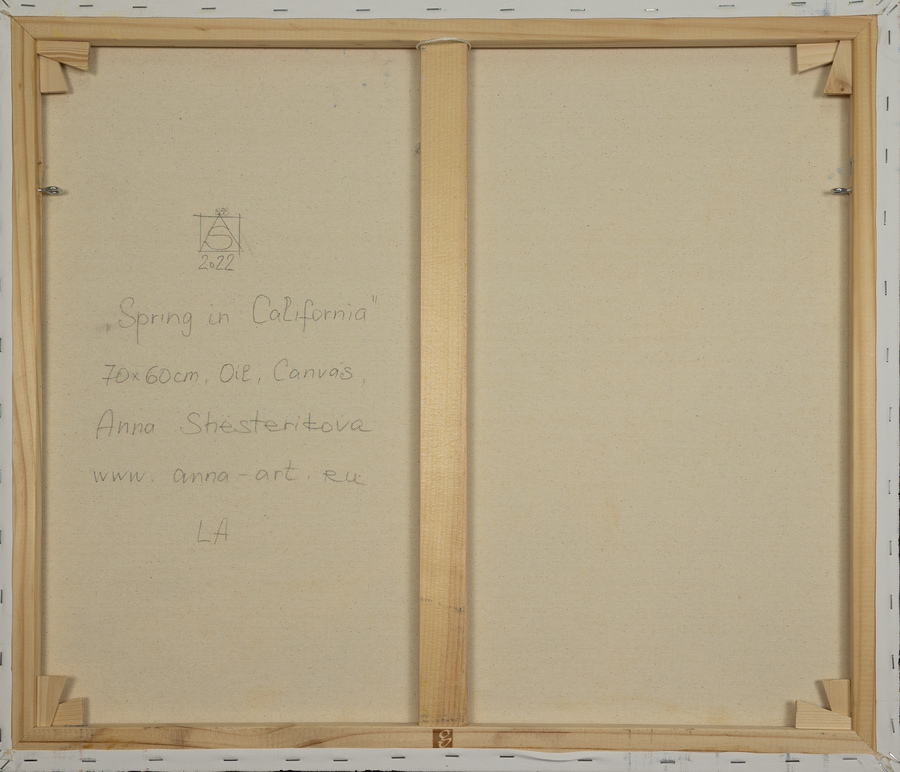 AS
2022
„Spring in California"
70x60cm, Oil, Canvas,
Anna Shesterikova
www.anna-art.eu
LA